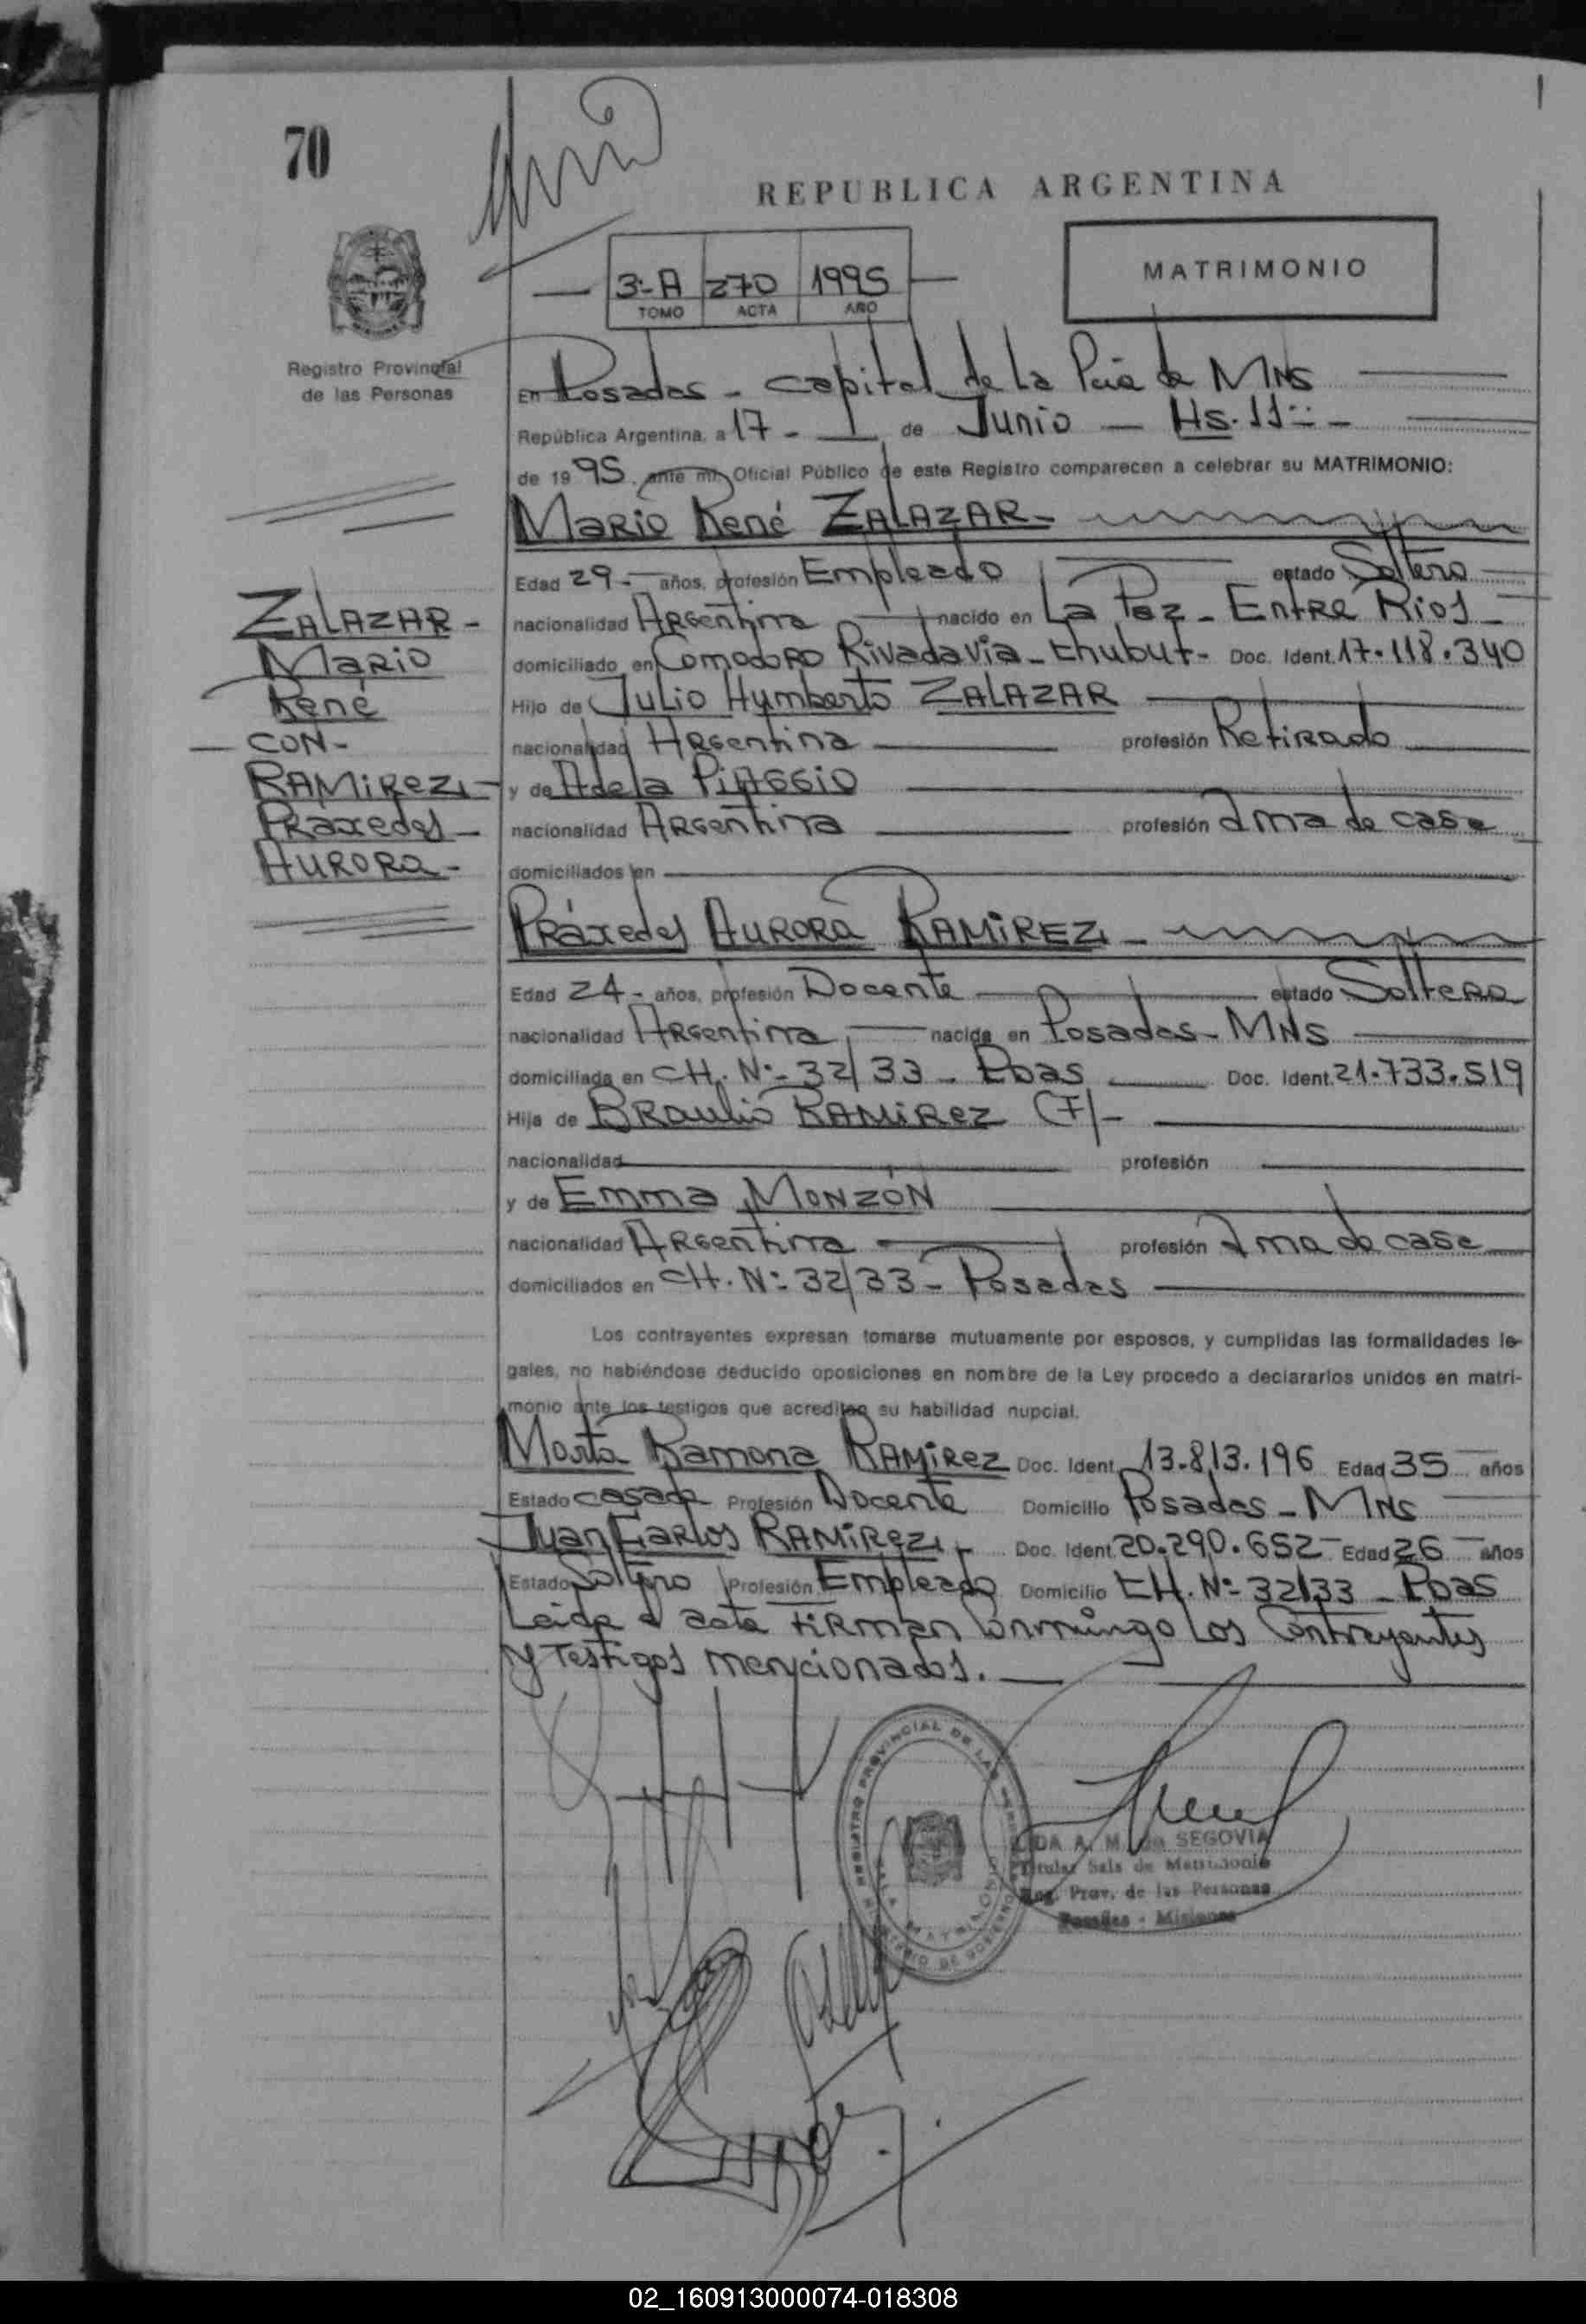 70
REPUBLICA ARGENTINA
3-A 270 1995
TOMO ACTA AÑO
MATRIMONIO
Registro Provincial
de las Personas
En Posadas - capital de la Pcia de MNS
República Argentina, a 17 - de Junio - Hs. 11
de 1995. ante mi, Oficial Público de este Registro comparecen a celebrar su MATRIMONIO:
Mario René ZALAZAR-
Edad 29- años, profesión Empleado estado Soltero
nacionalidad Argentina nacido en La Paz - Entre Rios
domiciliado en Comodoro Rivadavia - Chubut- Doc. Ident. 17.118.340
Hijo de Julio Humberto ZALAZAR
nacionalidad Argentina profesión Retirado
y de Adela PIAGGIO
nacionalidad Argentina profesión Ama de casa
domiciliados en
ZALAZAR-
Mario
René
- CON-
RAMIREZ-
Práxedes-
AURORA-
Práxedes AURORA RAMIREZ-
Edad 24- años, profesión Docente estado Soltera
nacionalidad Argentina nacida en Posadas - MNS
domiciliada en CH. Nº- 32/33 - Pdas Doc. Ident. 21.733.519
Hija de Braulio RAMIREZ (F)-
nacionalidad profesión
y de Emma MONZÓN
nacionalidad Argentina profesión Ama de casa
domiciliados en CH. Nº- 32/33 - Posadas
Los contrayentes expresan tomarse mutuamente por esposos, y cumplidas las formalidades le-
gales, no habiéndose deducido oposiciones en nombre de la Ley procedo a declararlos unidos en matri-
monio ante los testigos que acreditan su habilidad nupcial.
Marta Ramona RAMIREZ Doc. Ident. 13.813.196 Edad 35 años
Estado casada Profesión Docente Domicilio Posadas - MNS
Juan Carlos RAMIREZ- Doc. Ident. 20.290.652 Edad 26 años
Estado Soltero Profesión Empleado Domicilio CH. Nº- 32/33 - Pdas
Leida el acta FIRMAN conmigo los Contrayentes
y Testigos mencionados.
REGISTRO PROVINCIAL DE LAS
SALA MATRIMONIO
MINISTERIO DE GOBIERNO
A. M. de SEGOVIA
Titular Sala de Matrimonio
Reg. Prov. de las Personas
Posadas - Misiones
02_160913000074-018308